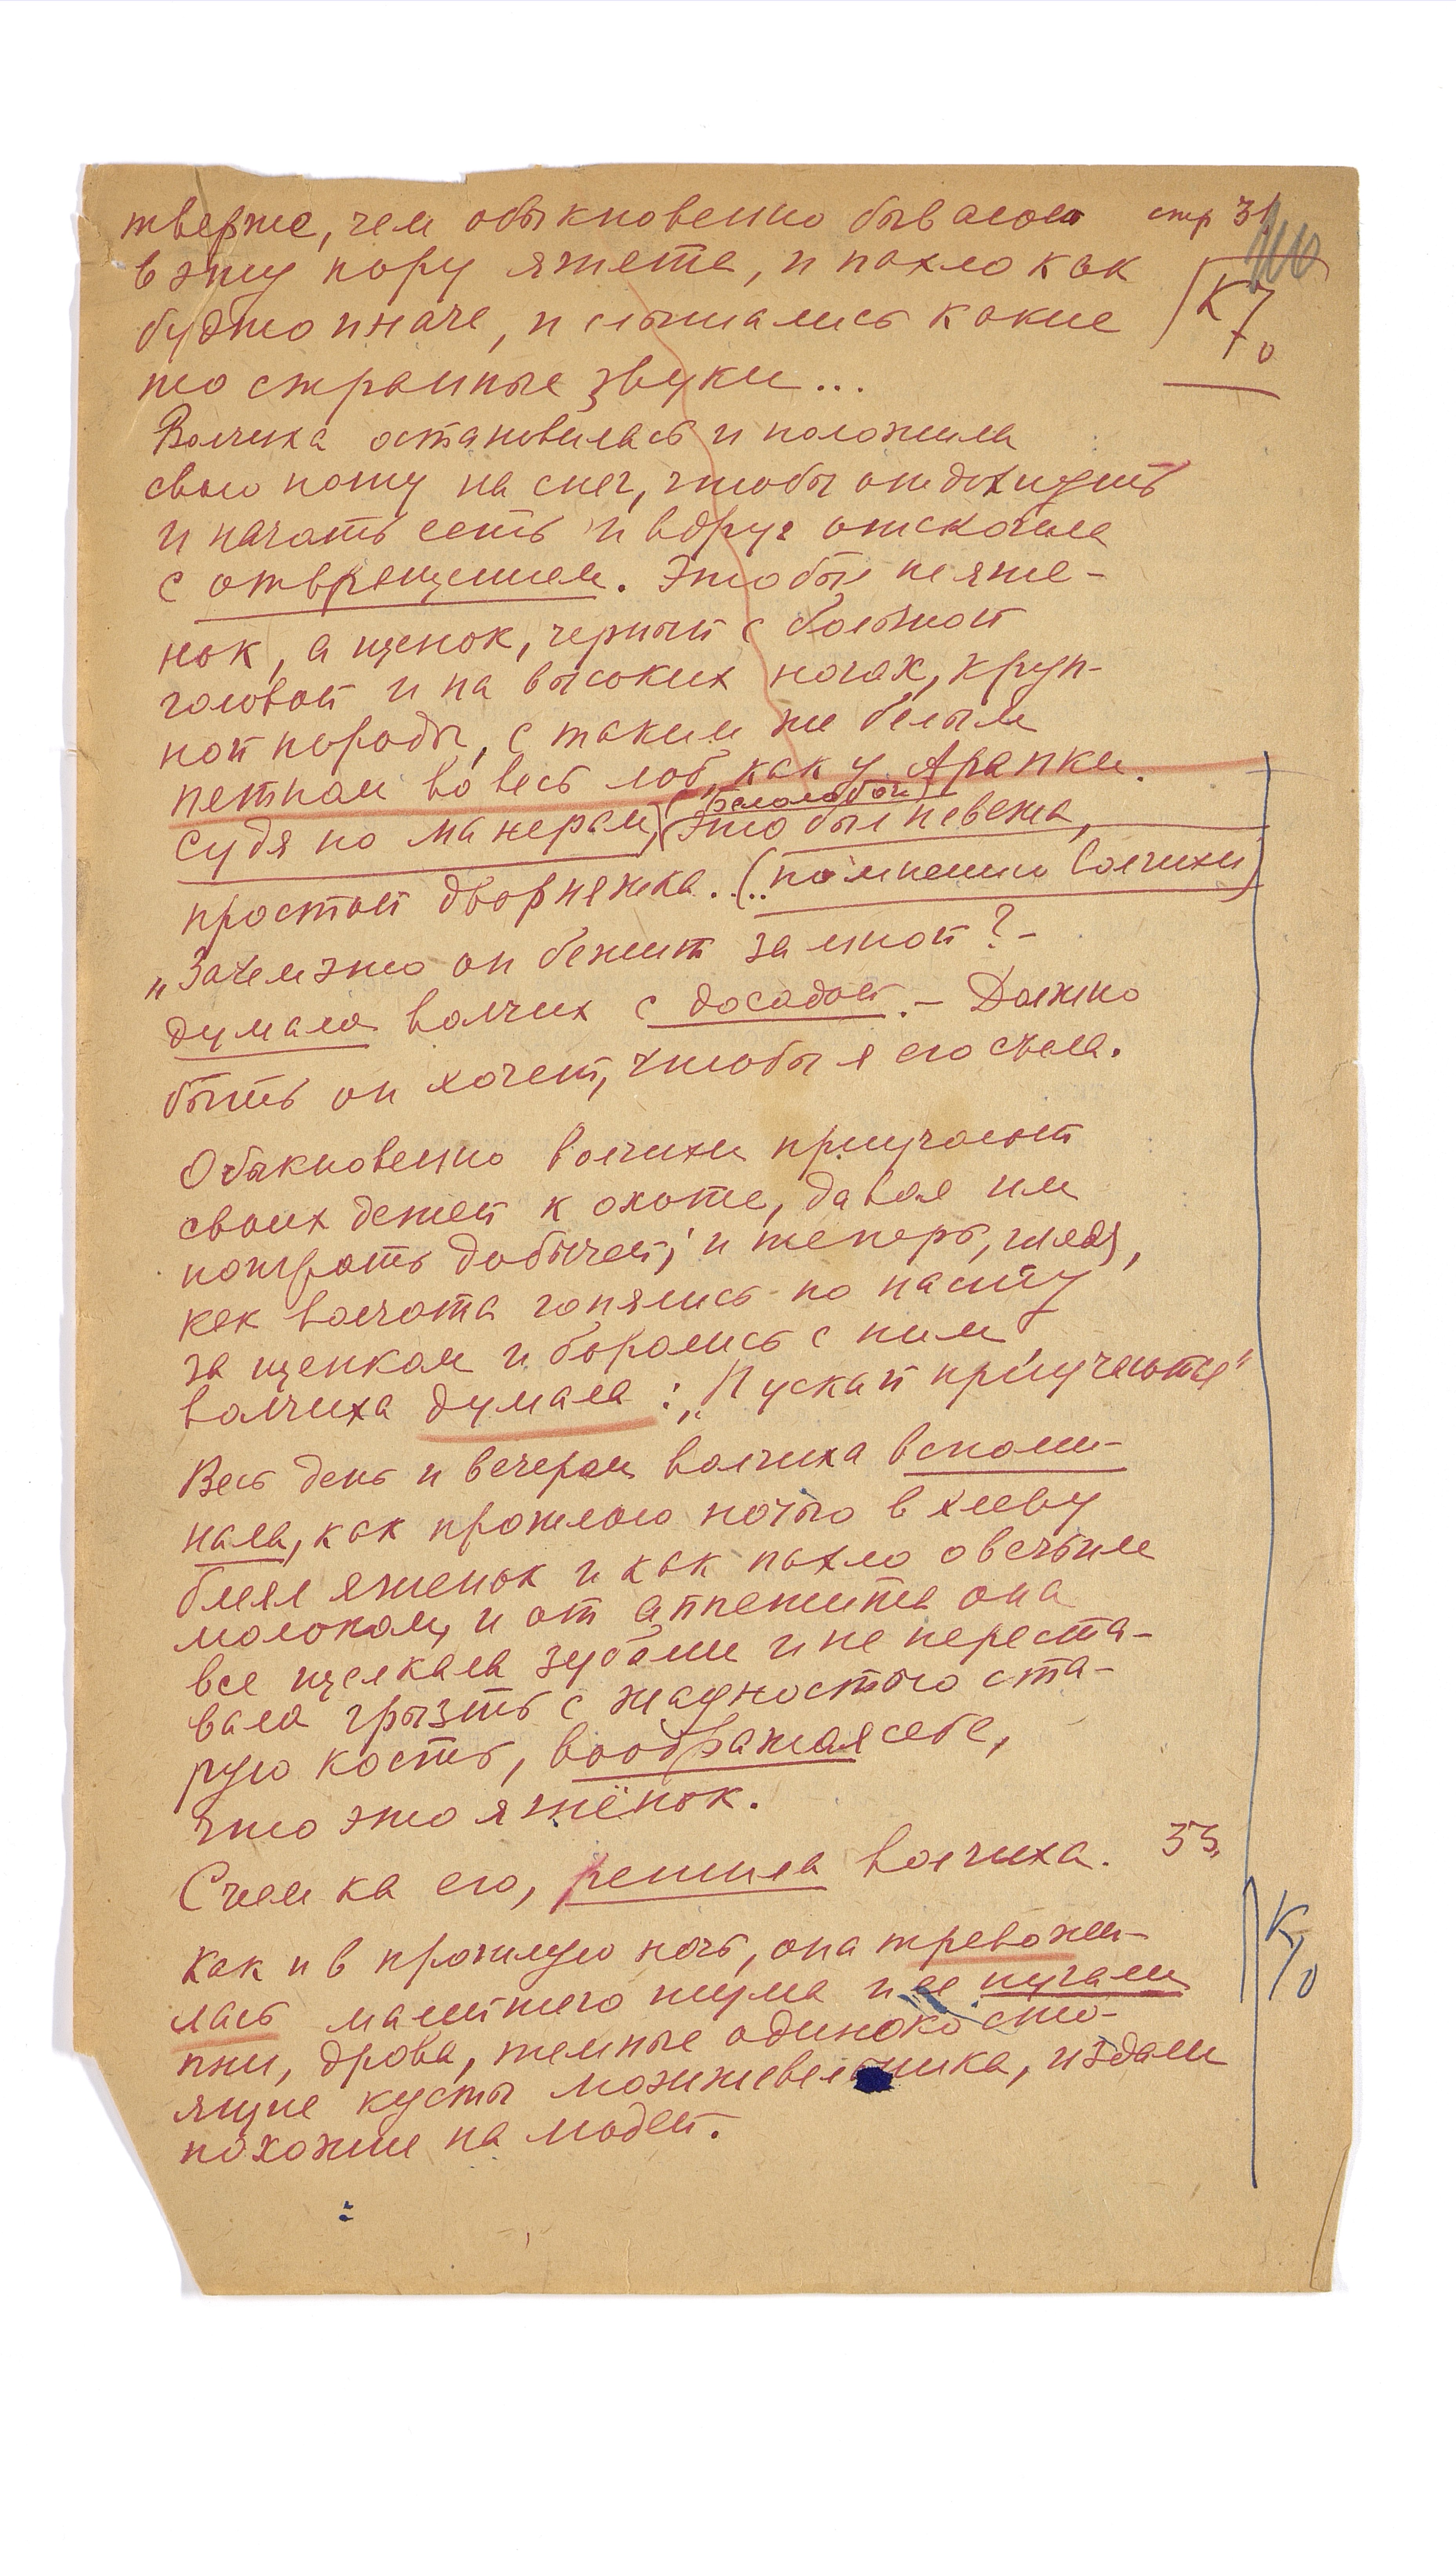 тверже, чем обыкновенно бывают стр 31
в эту пору ягнята, и пахло как
будто иначе, и слышались какие
то странные звуки...
Волчиха остановилась и положила
свою ношу на снег, чтобы отдохнуть
и начать есть и вдруг отскочила
с отвращением. Это был не ягне-
нок, а щенок, черный с большой
головой и на высоких ногах, круп-
ной породы, с таким же белым
пятном во весь лоб, как у Арапки.
(Белолобый)
Судя по манерам, это был невежа,
простой дворняжка. (.. по мнению волчихи)
„Зачем это он бежит за мной? -
думала волчиха с досадой. - Должно
быть он хочет, чтобы я его съела.
Обыкновенно волчихи приучают
своих детей к охоте, давая им
поиграть добычей; и теперь, глядя,
как волчата гонялись по насту
за щенком и боролись с ним
волчиха думала: „Пускай приучаются"
Весь день и вечером волчиха вспоми-
нала, как прошлою ночью в хлеву
блеял ягненок и как пахло овечьим
молоком, и от аппетита она
все щелкала зубами и не переста-
вала грызть с жадностью ста-
рую кость, воображая себе,
что это ягнёнок.
Съем ка его, решила волчиха. 33.
Как и в прошлую ночь, она тревожи-
лась малейшего шума и ее пугали
пни, дрова, темные одиноко сто-
ящие кусты можжевельника, издали
похожие на людей.